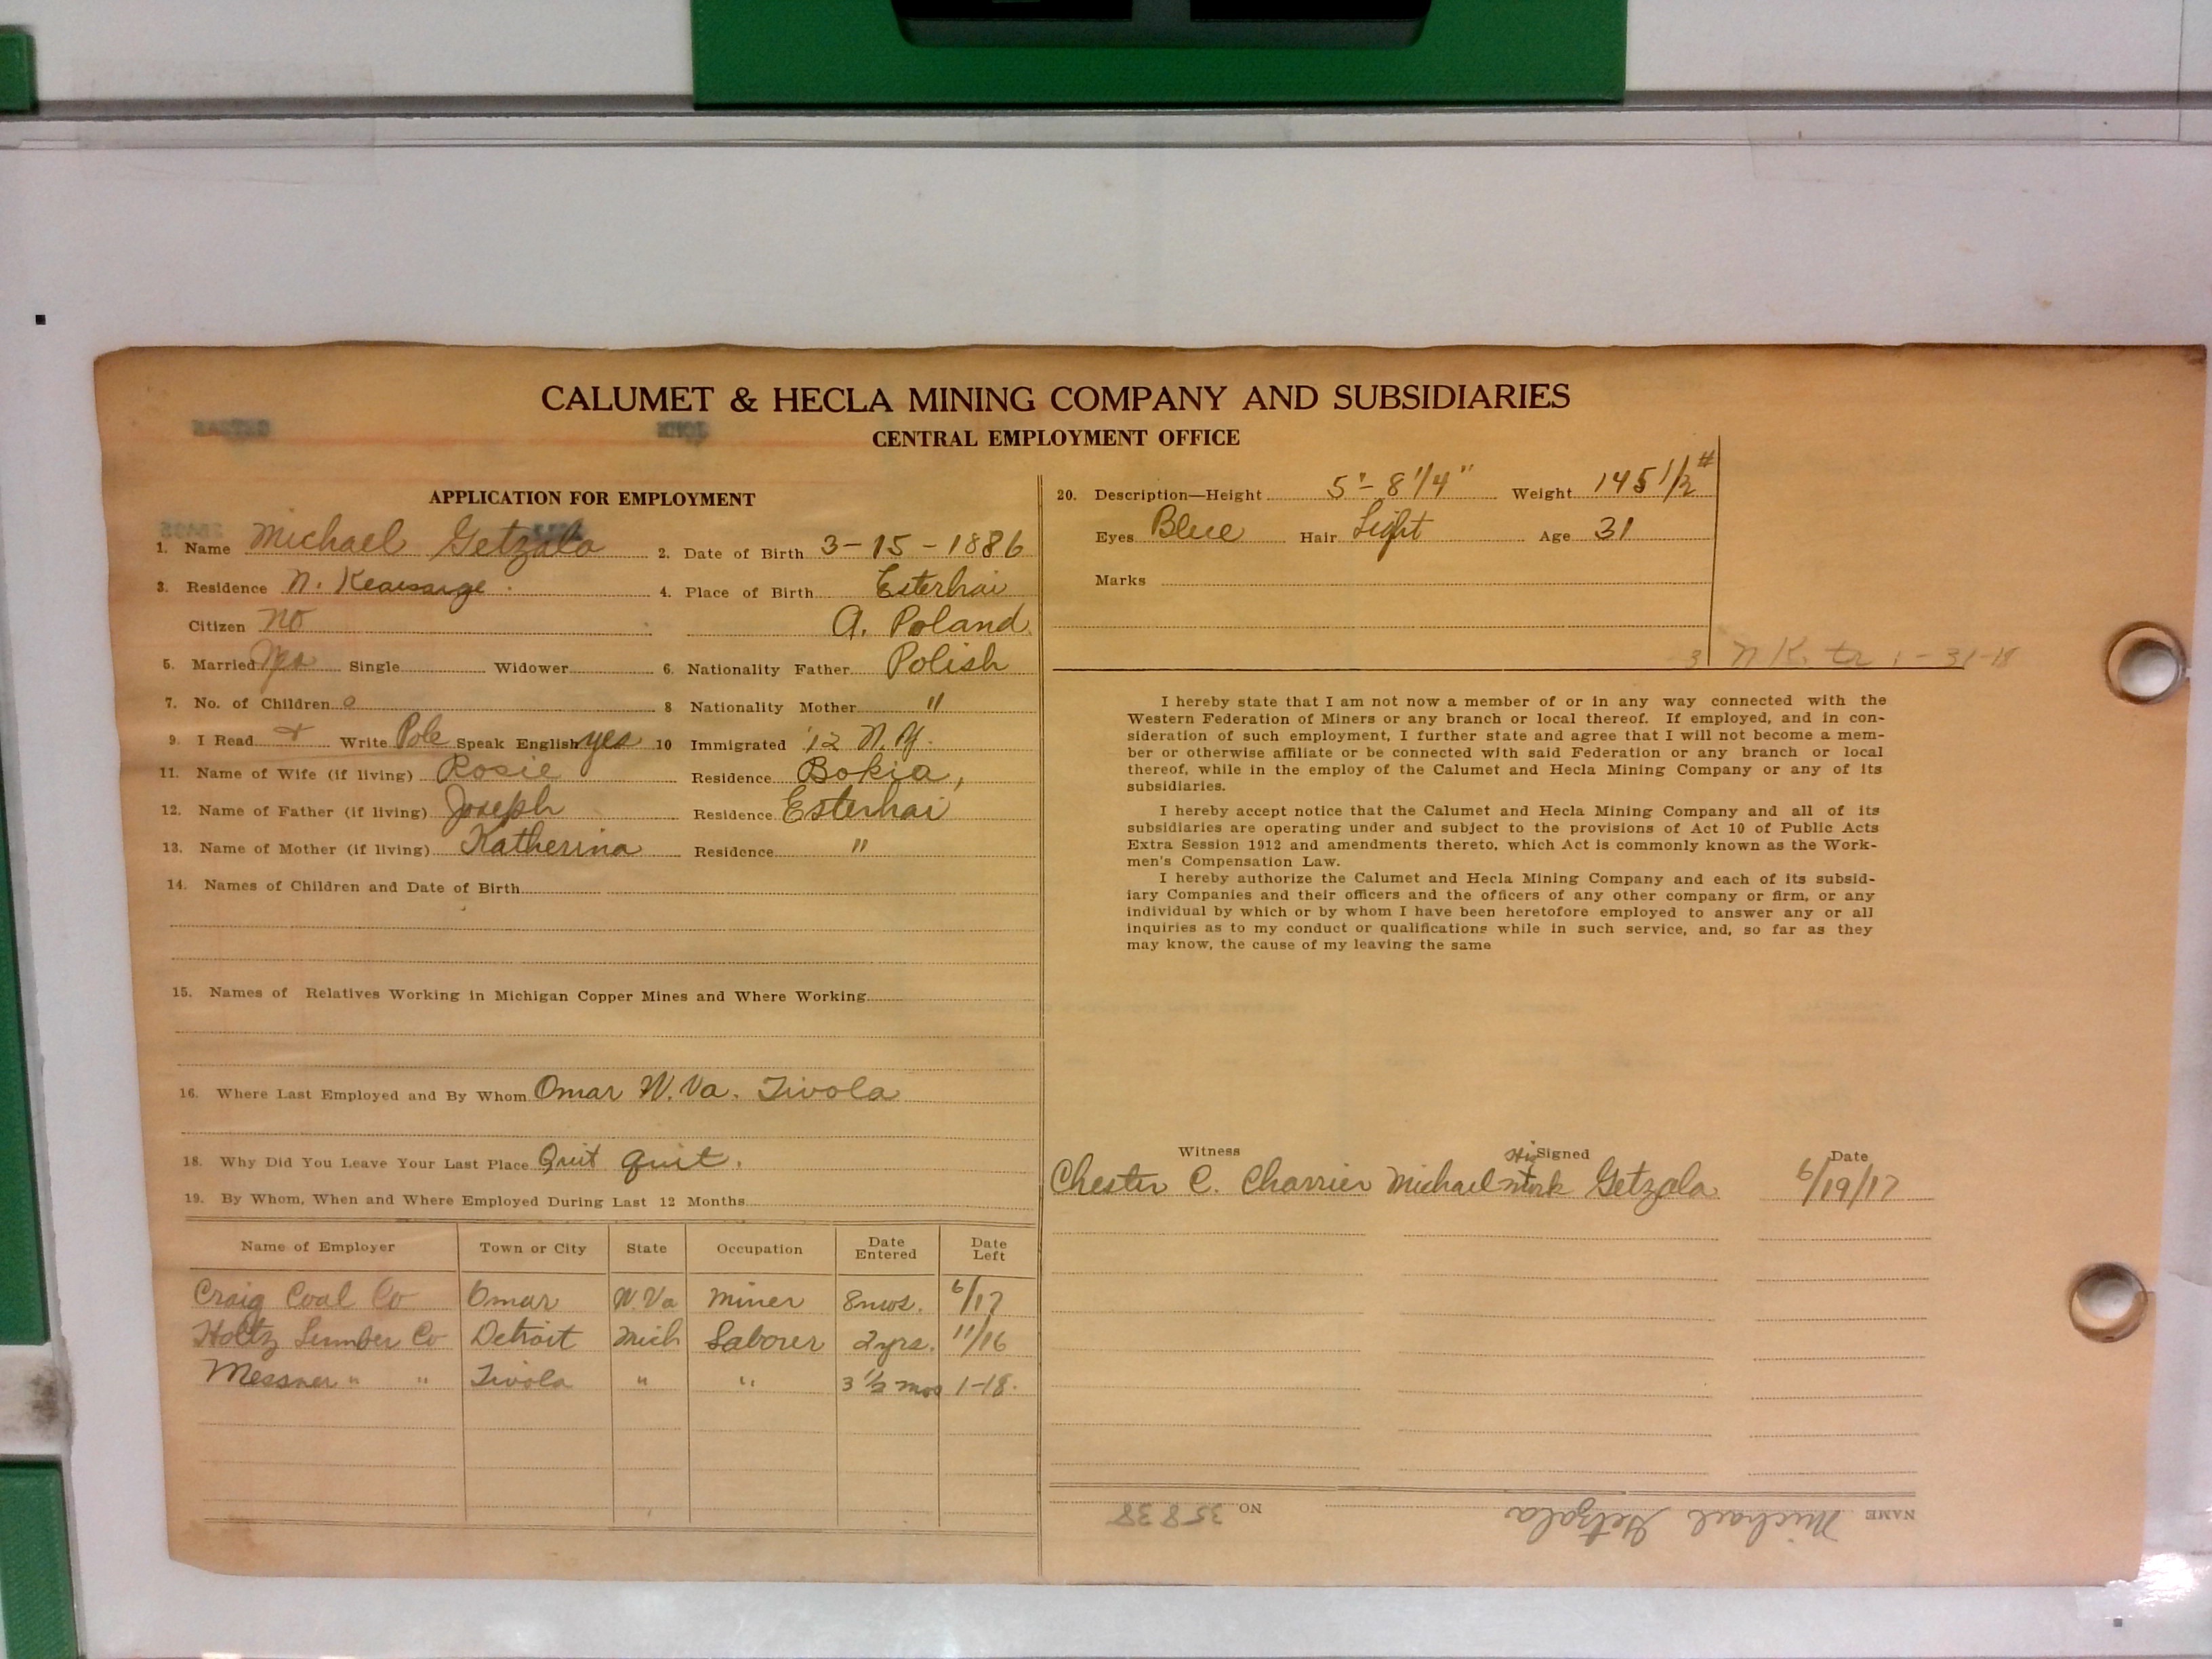 CALUMET & HECLA MINING COMPANY AND SUBSIDIARIES
CENTRAL EMPLOYMENT OFFICE
APPLICATION FOR EMPLOYMENT
1. Name Michael Getzala 2. Date of Birth 3-15-1886
3. Residence N. Kearsarge. 4. Place of Birth Esterhai
Citizen No A. Poland
5. Married Yes Single Widower 6. Nationality Father Polish
7. No. of Children 0 8 Nationality Mother "
9. I Read + Write Pole Speak English yes 10 Immigrated '12 N.Y.
11. Name of Wife (if living) Rosie Residence Bokia,
12. Name of Father (if living) Joseph Residence Esterhai
13. Name of Mother (if living) Katherina Residence "
14. Names of Children and Date of Birth
15. Names of Relatives Working in Michigan Copper Mines and Where Working
16. Where Last Employed and By Whom Omar W. Va. Tivola
18. Why Did You Leave Your Last Place Quit quit.
19. By Whom, When and Where Employed During Last 12 Months
Name of Employer Town or City State Occupation Date Entered Date Left
Craig Coal Co Omar W. Va Miner 8 mos. 6/17
Holtz Lumber Co Detroit Mich Laborer 2 yrs. 11/16
Messner " " Tivola " " 3 1/2 mos 1-18.
20. Description—Height 5"-8 1/4" Weight 145 1/2 #
Eyes Blue Hair Light Age 31
Marks
3 N K. tr 1-31-18
I hereby state that I am not now a member of or in any way connected with the
Western Federation of Miners or any branch or local thereof. If employed, and in con-
sideration of such employment, I further state and agree that I will not become a mem-
ber or otherwise affiliate or be connected with said Federation or any branch or local
thereof, while in the employ of the Calumet and Hecla Mining Company or any of its
subsidiaries.
I hereby accept notice that the Calumet and Hecla Mining Company and all of its
subsidiaries are operating under and subject to the provisions of Act 10 of Public Acts
Extra Session 1912 and amendments thereto, which Act is commonly known as the Work-
men's Compensation Law.
I hereby authorize the Calumet and Hecla Mining Company and each of its subsid-
iary Companies and their officers and the officers of any other company or firm, or any
individual by which or by whom I have been heretofore employed to answer any or all
inquiries as to my conduct or qualifications while in such service, and, so far as they
may know, the cause of my leaving the same
Witness Signed Date
Chester C. Charrier Michael his mark Getzala 6/19/17
NAME Michael Getzala NO 35838